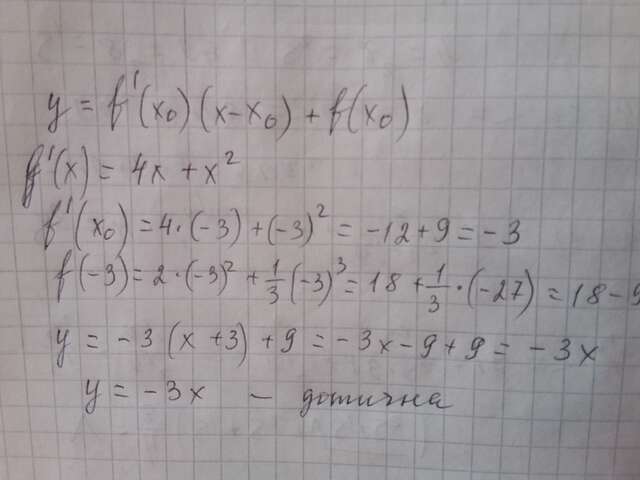 y = f'(x₀)(x-x₀) + f(x₀)
f'(x) = 4x + x²
f'(x₀) = 4·(-3) + (-3)² = -12 + 9 = -3
f(-3) = 2·(-3)² + 1/3(-3)³ = 18 + 1/3·(-27) = 18 - 9
y = -3(x+3) + 9 = -3x - 9 + 9 = -3x
y = -3x - дотична